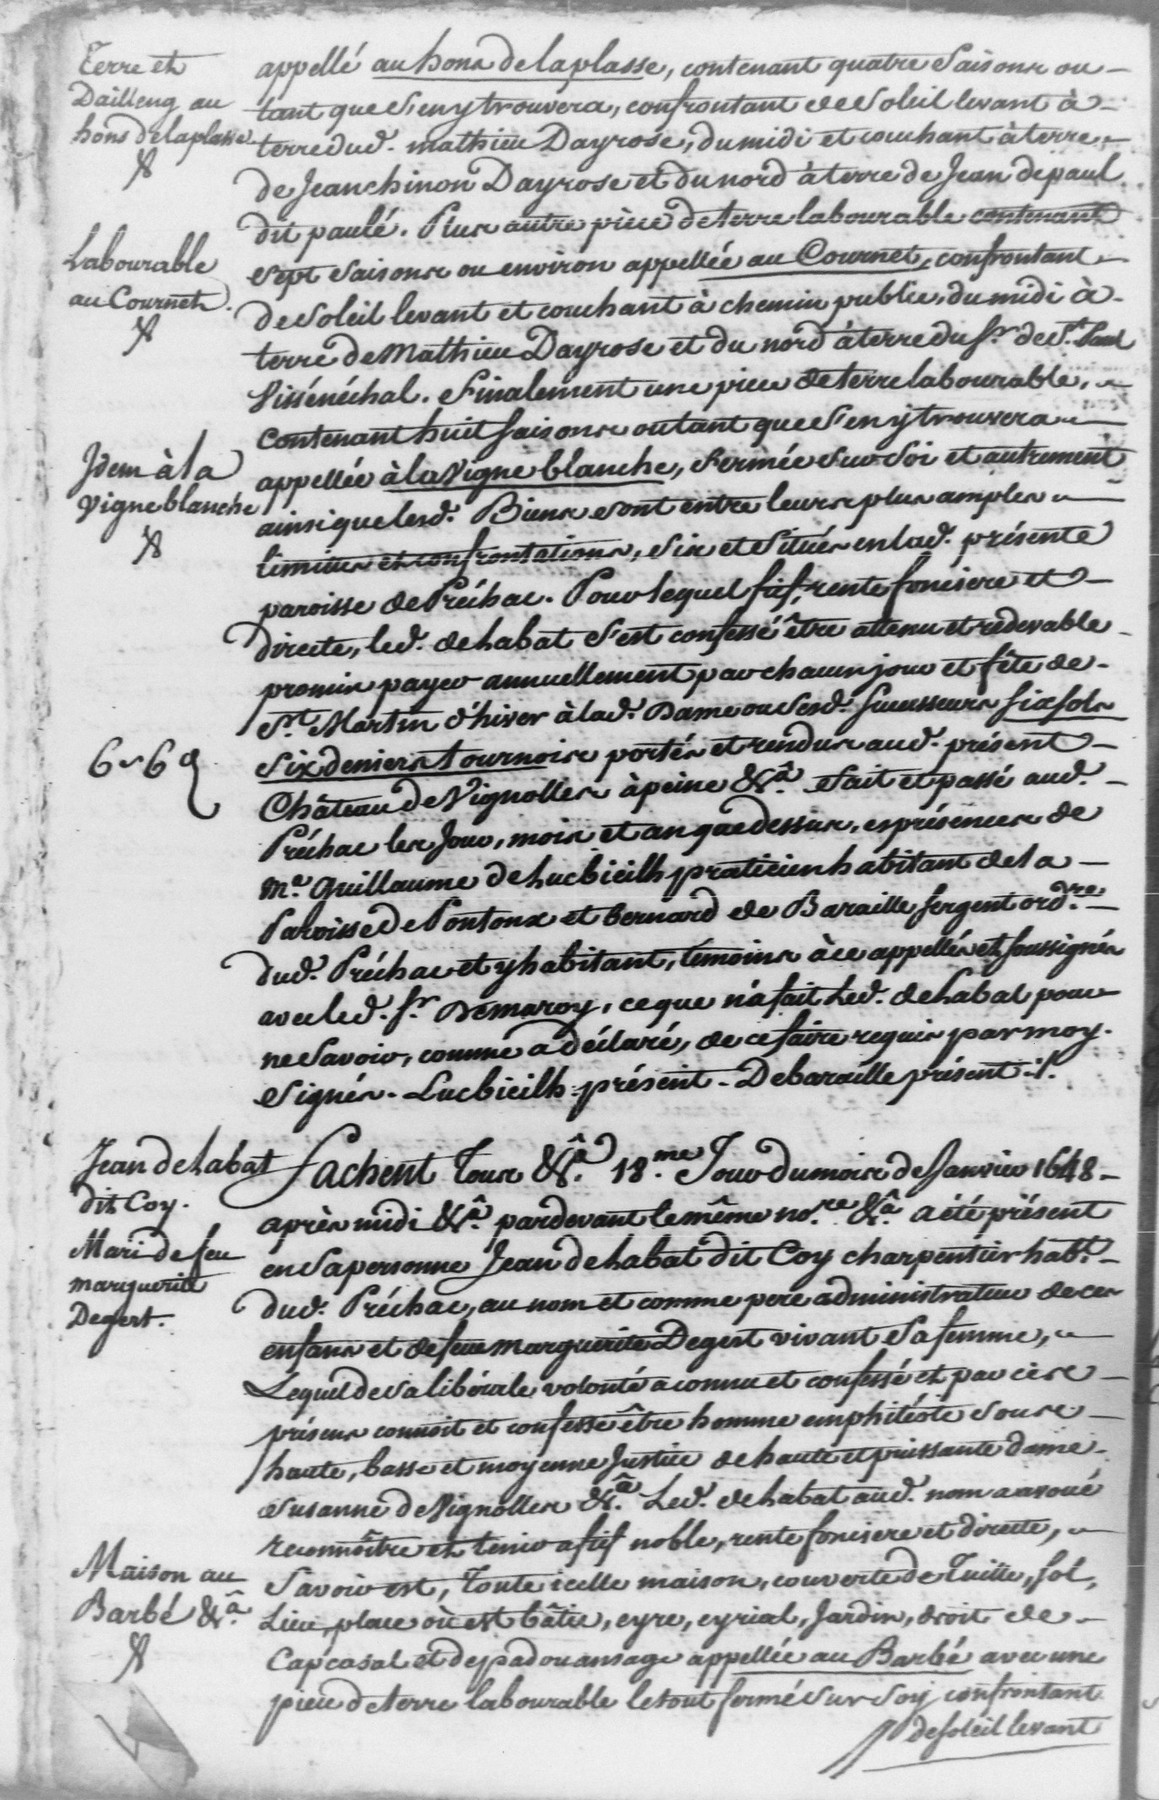 Terre et
Dailleng au
hons de laplasse
appellé au hons de laplasse, contenant quatre Saisons ou
tant que S'en y trouvera, confrontant de Soleil levant à
terre dud. mathieu Dayrose, du midi et couchant à terre
de Jeanchinon Dayrose et du nord à terre de Jean depaul
dit paulé. Plus autre pièce de terre labourable contenant
Labourable
au Cournet.
Sept Saisons ou environ appellée au Cournet, confrontant
de Soleil levant et couchant à chemin public, du midi à
terre de Mathieu Dayrose et du nord à terre du Sr. de St. Paul
Vissénéchal. Finalement une piece de terre labourable,
contenant huit Saisons ou tant que S'en y trouvera
Idem à la
vigne blanche
appellée à la vigne blanche, fermée Sur Soi et autrement
ainsi que lesd. Biens Sont entre leurs plus amples
limites et confrontations, Sis et Situés en lad. présente
paroisse de Préchac. Pour lequel fief, rente foncsiere et
Directe, led. de habat S'est confessé être attenu et redevable
promis payer annuellement par chacun jour et fête de
St. Martin d'hiver à lad. Dame ou Sesd. Successeurs Six Sols
6 s 6 d
Six deniers tournois portés et rendus aud. présent
Château de Vignolles à peine &a. Fait et passé aud.
Préchac les Jour, mois et an que dessus, es présences de
Me. Guillaume de Lucbieilh praticien habitant de la
Paroisse de Pontonx et bernard de Baraille Sergent ordre.
dud. Préchac et y habitant, témoins à ce appellés et soussignés
avec led. Sr. Demaroy, ce que n'a fait Led. de habat pour
ne Savoir, comme a déclaré, de ce faire requis par moy.
Signés. Lucbieilh présent. Debaraille présent ./.
Jean de habat
dit Coy.
Mari de feu
marguerite
Degert.
Sachent Tous &a. 18.me Jour du mois de Janvier 1648
après midi &a. pardevant le même nore. &a. a été présent
en Sa personne Jean de habat dit Coy charpentier habt.
dud. Préchac, au nom et comme pere administrateur de ces
enfans et de feue marguerite Degert vivant Sa femme,
Lequel de Sa libérale volonté a connu et confessé et par ces
présens connoit et confesse être homme emphitéote Sous
haute, basse et moyenne Justice de haute et puissante dame
Susanne de Vignolles &a. Led. de habat aud. nom a avoué
reconnoître et tenir a fief noble, rente foncsiere et directe,
Maison au
Barbé &a.
Savoir est, Toute icelle maison, couverte de Tuille, sol,
Lieu, place où est bâtie, eyre, eyrial, Jardin, droit de
Capcasal et de padouansage appellée au Barbé avec une
piece de terre labourable le tout fermé Sur Soy confrontant
de soleil levant